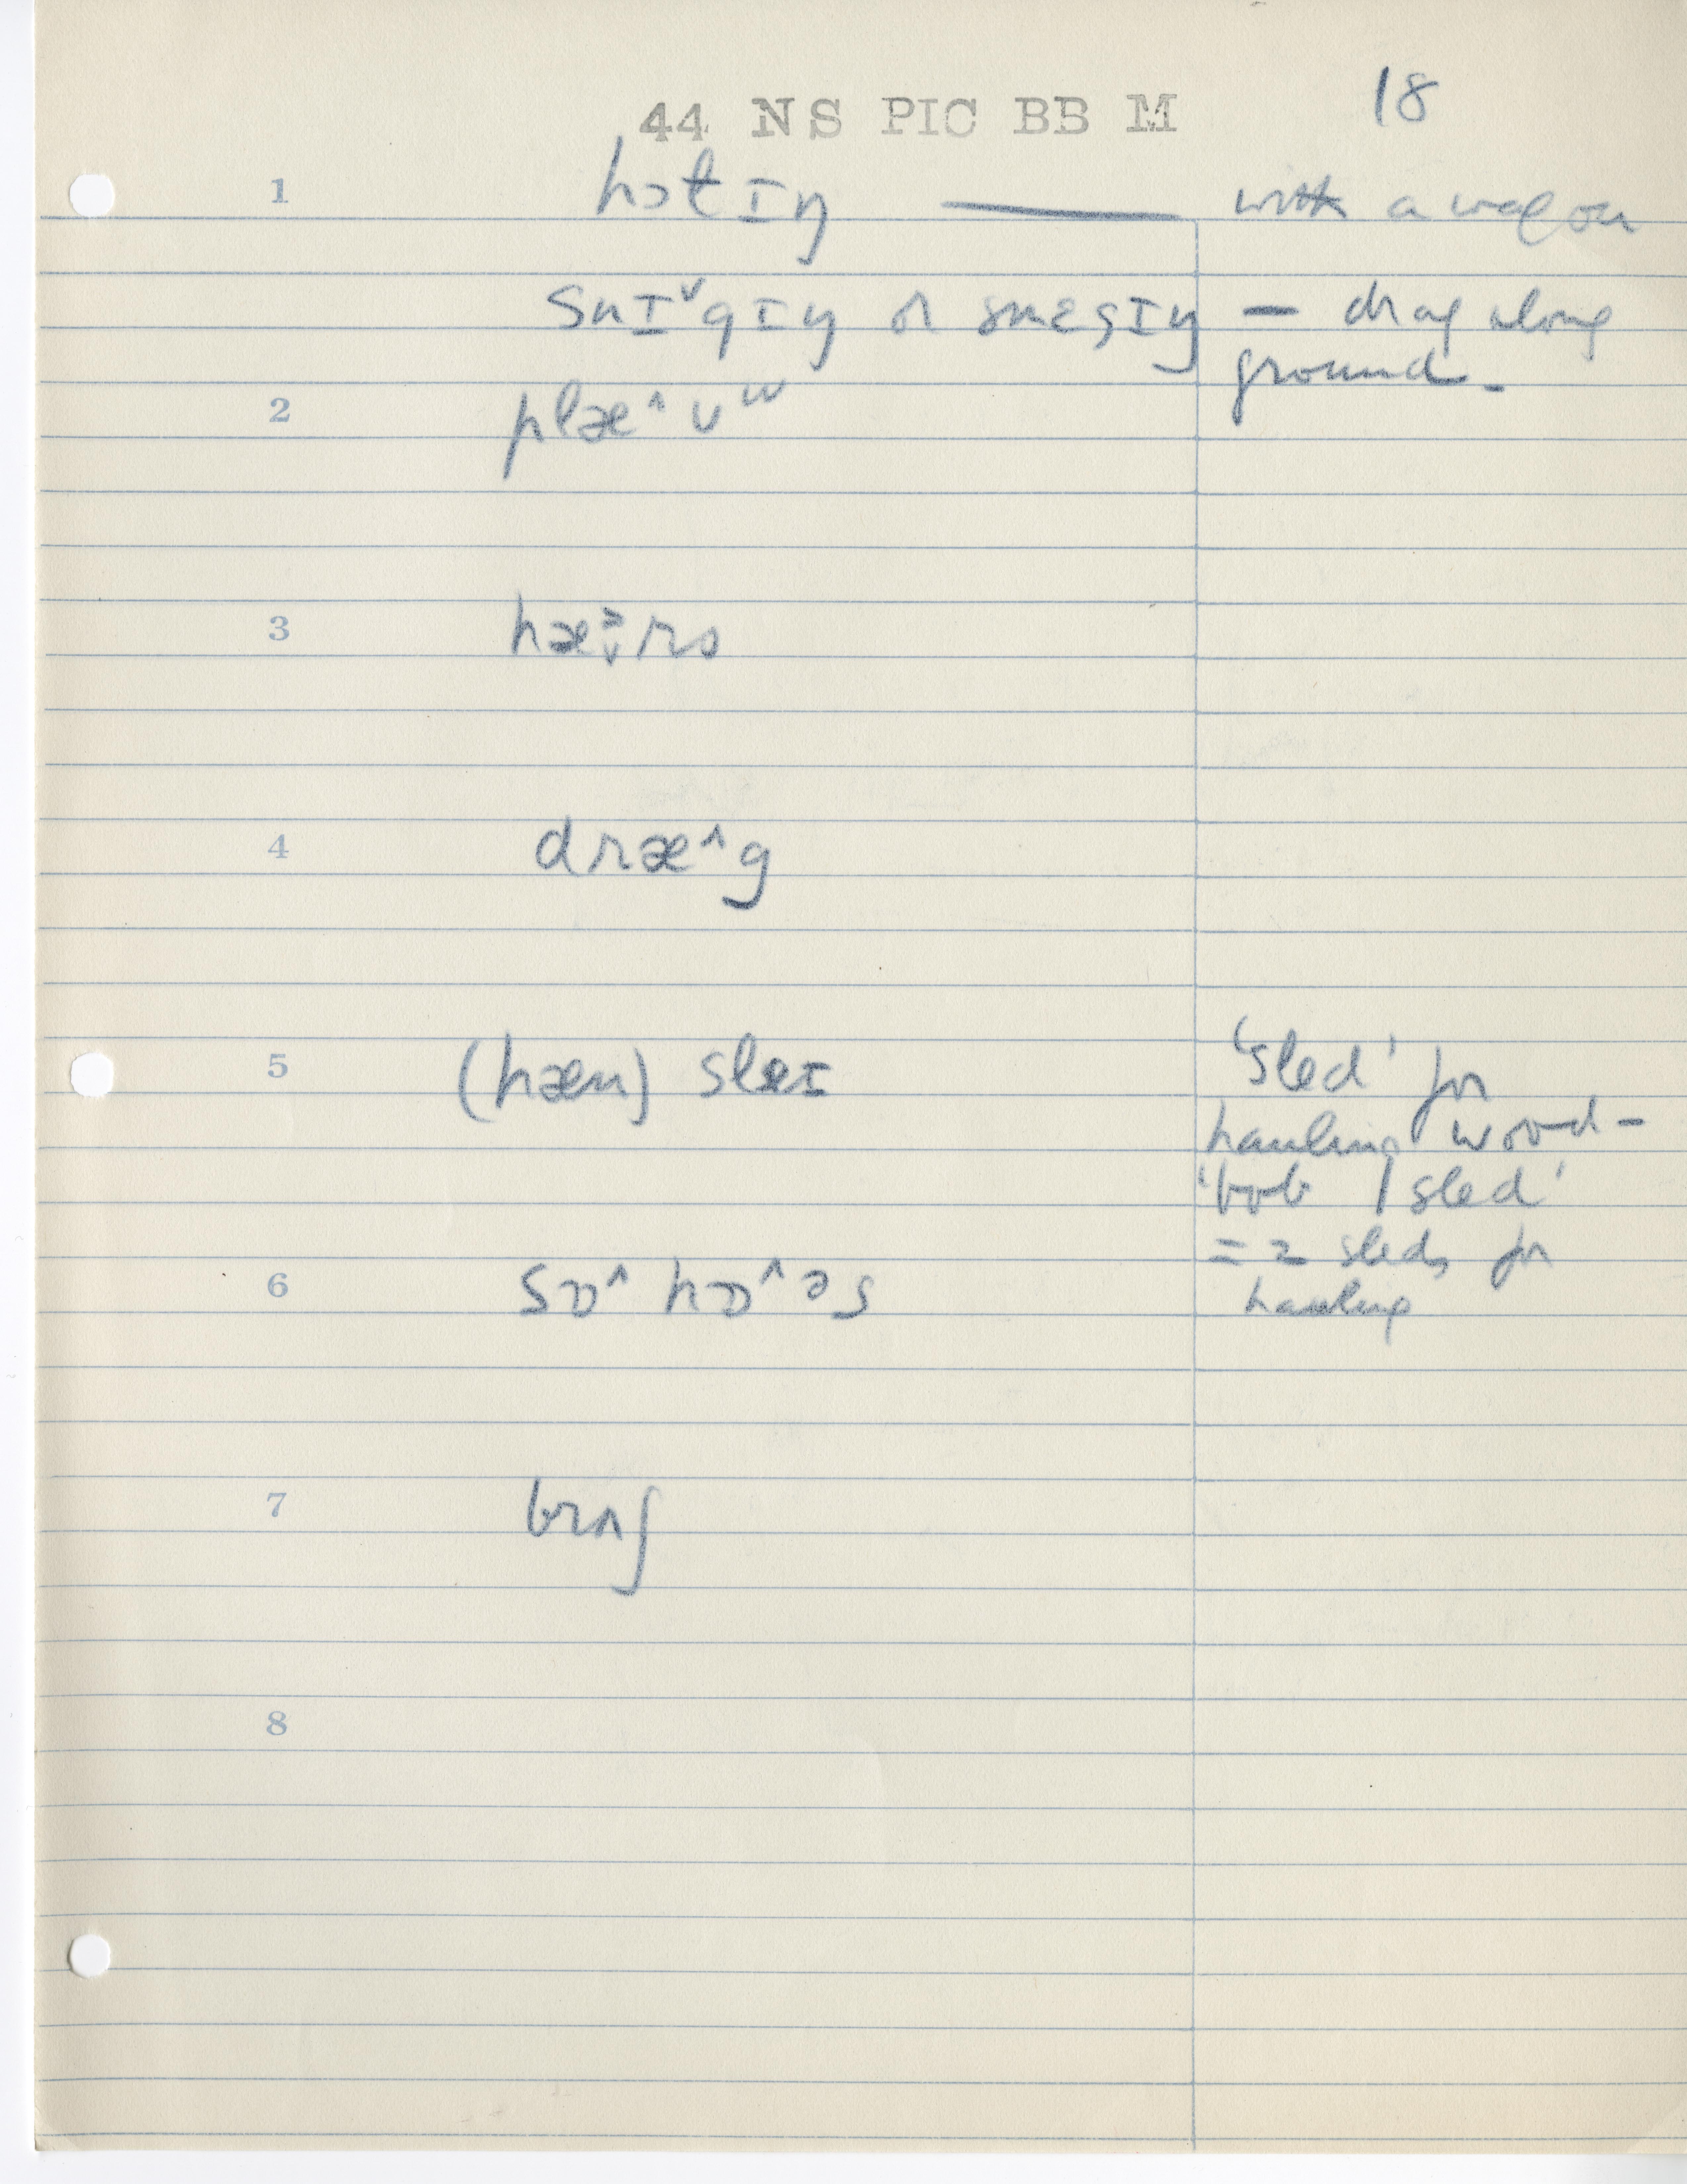 44 NS PIC BB M 18
1 hɔtɪŋ — with a wagon
snɪˇgɪŋ or snɛgɪŋ — drag along
ground.
2 plæ^ʊʷ
3
4 dræ^g
5 (hæn) sleɪ 'sled' for
hauling wood-
'bob / sled'
= 2 sleds for
hauling
6 sɒ^ hɒ^əs
7 brʌʃ
8